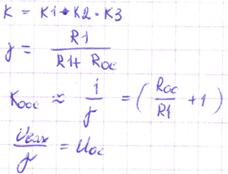 K = K1 * K2 * K3
γ = R1 / (R1 + Roc)
Kooc ≈ 1/γ = (Roc/R1 + 1)
Uвых/γ = Uoc